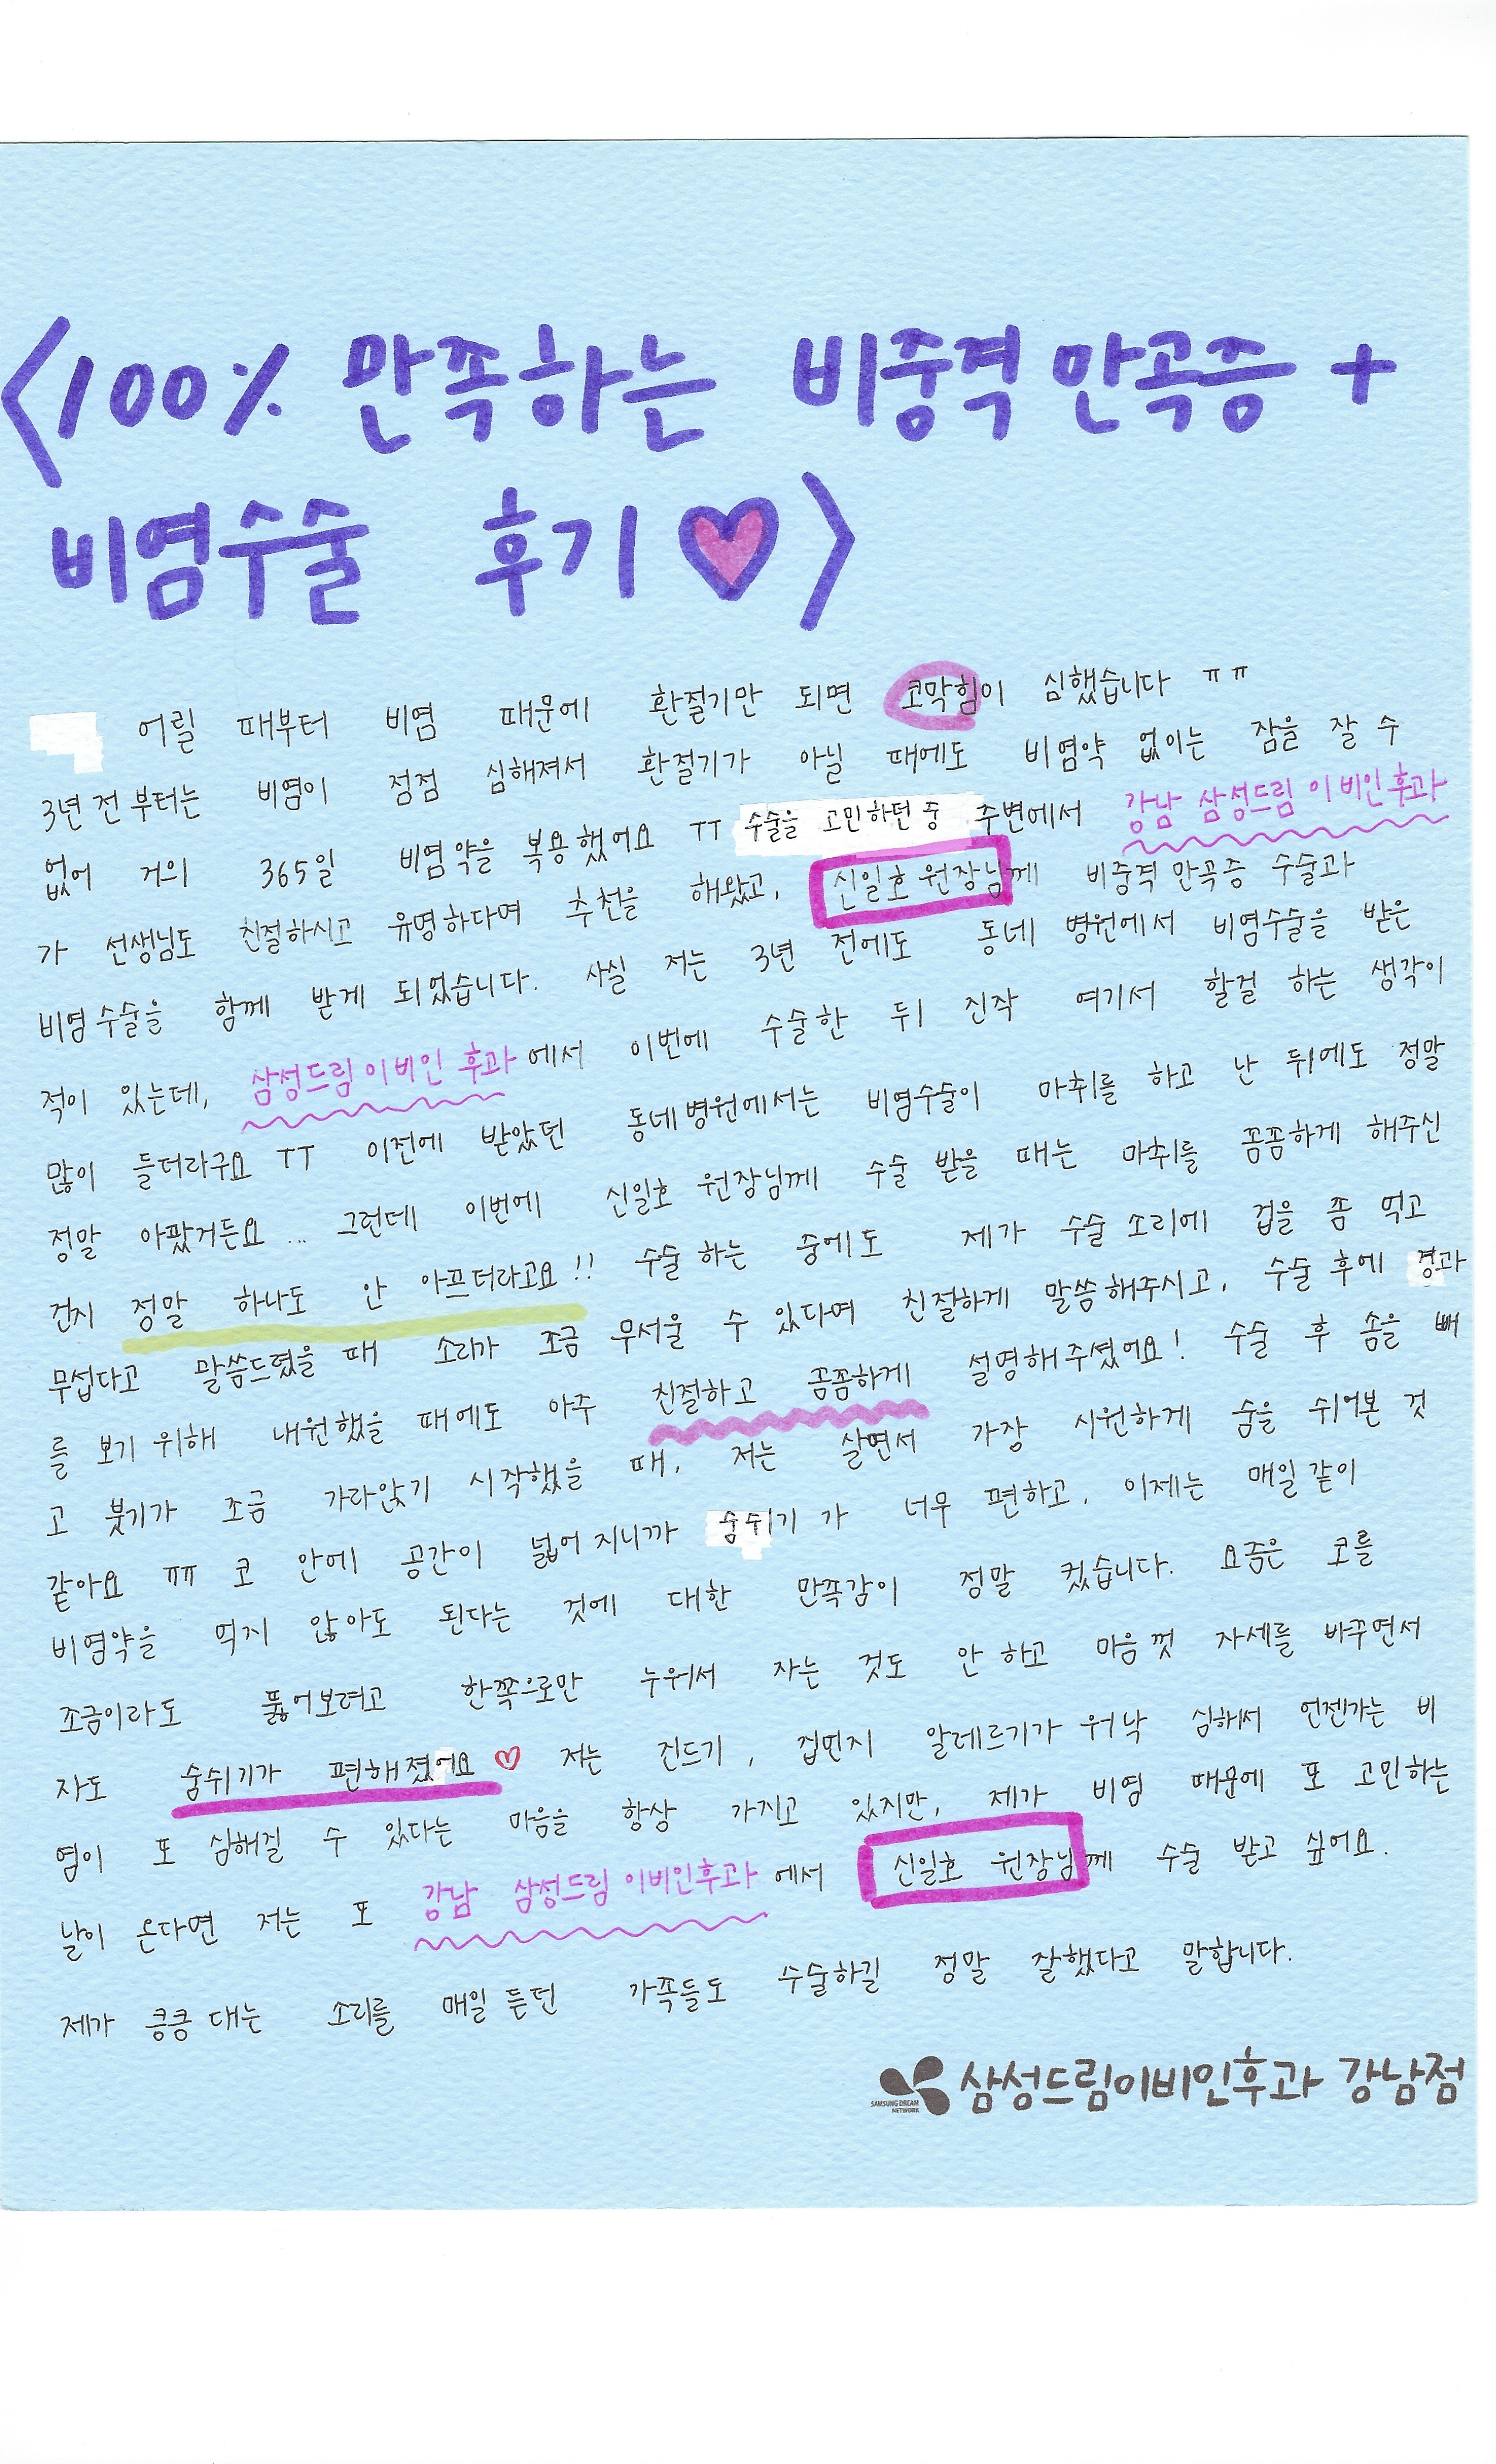 <100% 만족하는 비중격 만곡증 +
비염수술 후기♡>
어릴 때부터 비염 때문에 환절기만 되면 코막힘이 심했습니다 ㅠㅠ
3년 전 부터는 비염이 점점 심해져서 환절기가 아닐 때에도 비염약 없이는 잠을 잘 수
없어 거의 365일 비염약을 복용했어요 ㅜㅜ 수술을 고민하던 중 주변에서 강남 삼성드림 이비인후과
가 선생님도 친절하시고 유명하다며 추천을 해왔고, 신일호 원장님께 비중격 만곡증 수술과
비염수술을 함께 받게 되었습니다. 사실 저는 3년 전에도 동네 병원에서 비염수술을 받은
적이 있는데, 삼성드림 이비인후과에서 이번에 수술한 뒤 진작 여기서 할걸 하는 생각이
많이 들더라구요 ㅜㅜ 이전에 받았던 동네병원에서는 비염수술이 마취를 하고 난 뒤에도 정말
정말 아팠거든요... 그런데 이번에 신일호 원장님께 수술 받을 때는 마취를 꼼꼼하게 해주신
건지 정말 하나도 안 아프더라고요!! 수술 하는 중에도 제가 수술 소리에 겁을 좀 먹고
무섭다고 말씀드렸을 때 소리가 조금 무서울 수 있다며 친절하게 말씀해주시고, 수술 후에 경과
를 보기 위해 내원했을 때에도 아주 친절하고 꼼꼼하게 설명해주셨어요! 수술 후 솜을 빼
고 붓기가 조금 가라앉기 시작했을 때, 저는 살면서 가장 시원하게 숨을 쉬어본 것
같아요 ㅠㅠ 코 안에 공간이 넓어지니까 숨쉬기가 너무 편하고, 이제는 매일같이
비염약을 먹지 않아도 된다는 것에 대한 만족감이 정말 컸습니다. 요즘은 코를
조금이라도 뚫어보려고 한쪽으로만 누워서 자는 것도 안 하고 마음껏 자세를 바꾸면서
자도 숨쉬기가 편해졌어요♡ 저는 진드기, 집먼지 알레르기가 워낙 심해서 언젠가는 비
염이 또 심해질 수 있다는 마음을 항상 가지고 있지만, 제가 비염 때문에 또 고민하는
날이 온다면 저는 또 강남 삼성드림 이비인후과에서 신일호 원장님께 수술 받고 싶어요.
제가 킁킁 대는 소리를 매일 듣던 가족들도 수술하길 정말 잘했다고 말합니다.
SAMSUNG DREAM NETWORK 삼성드림이비인후과 강남점